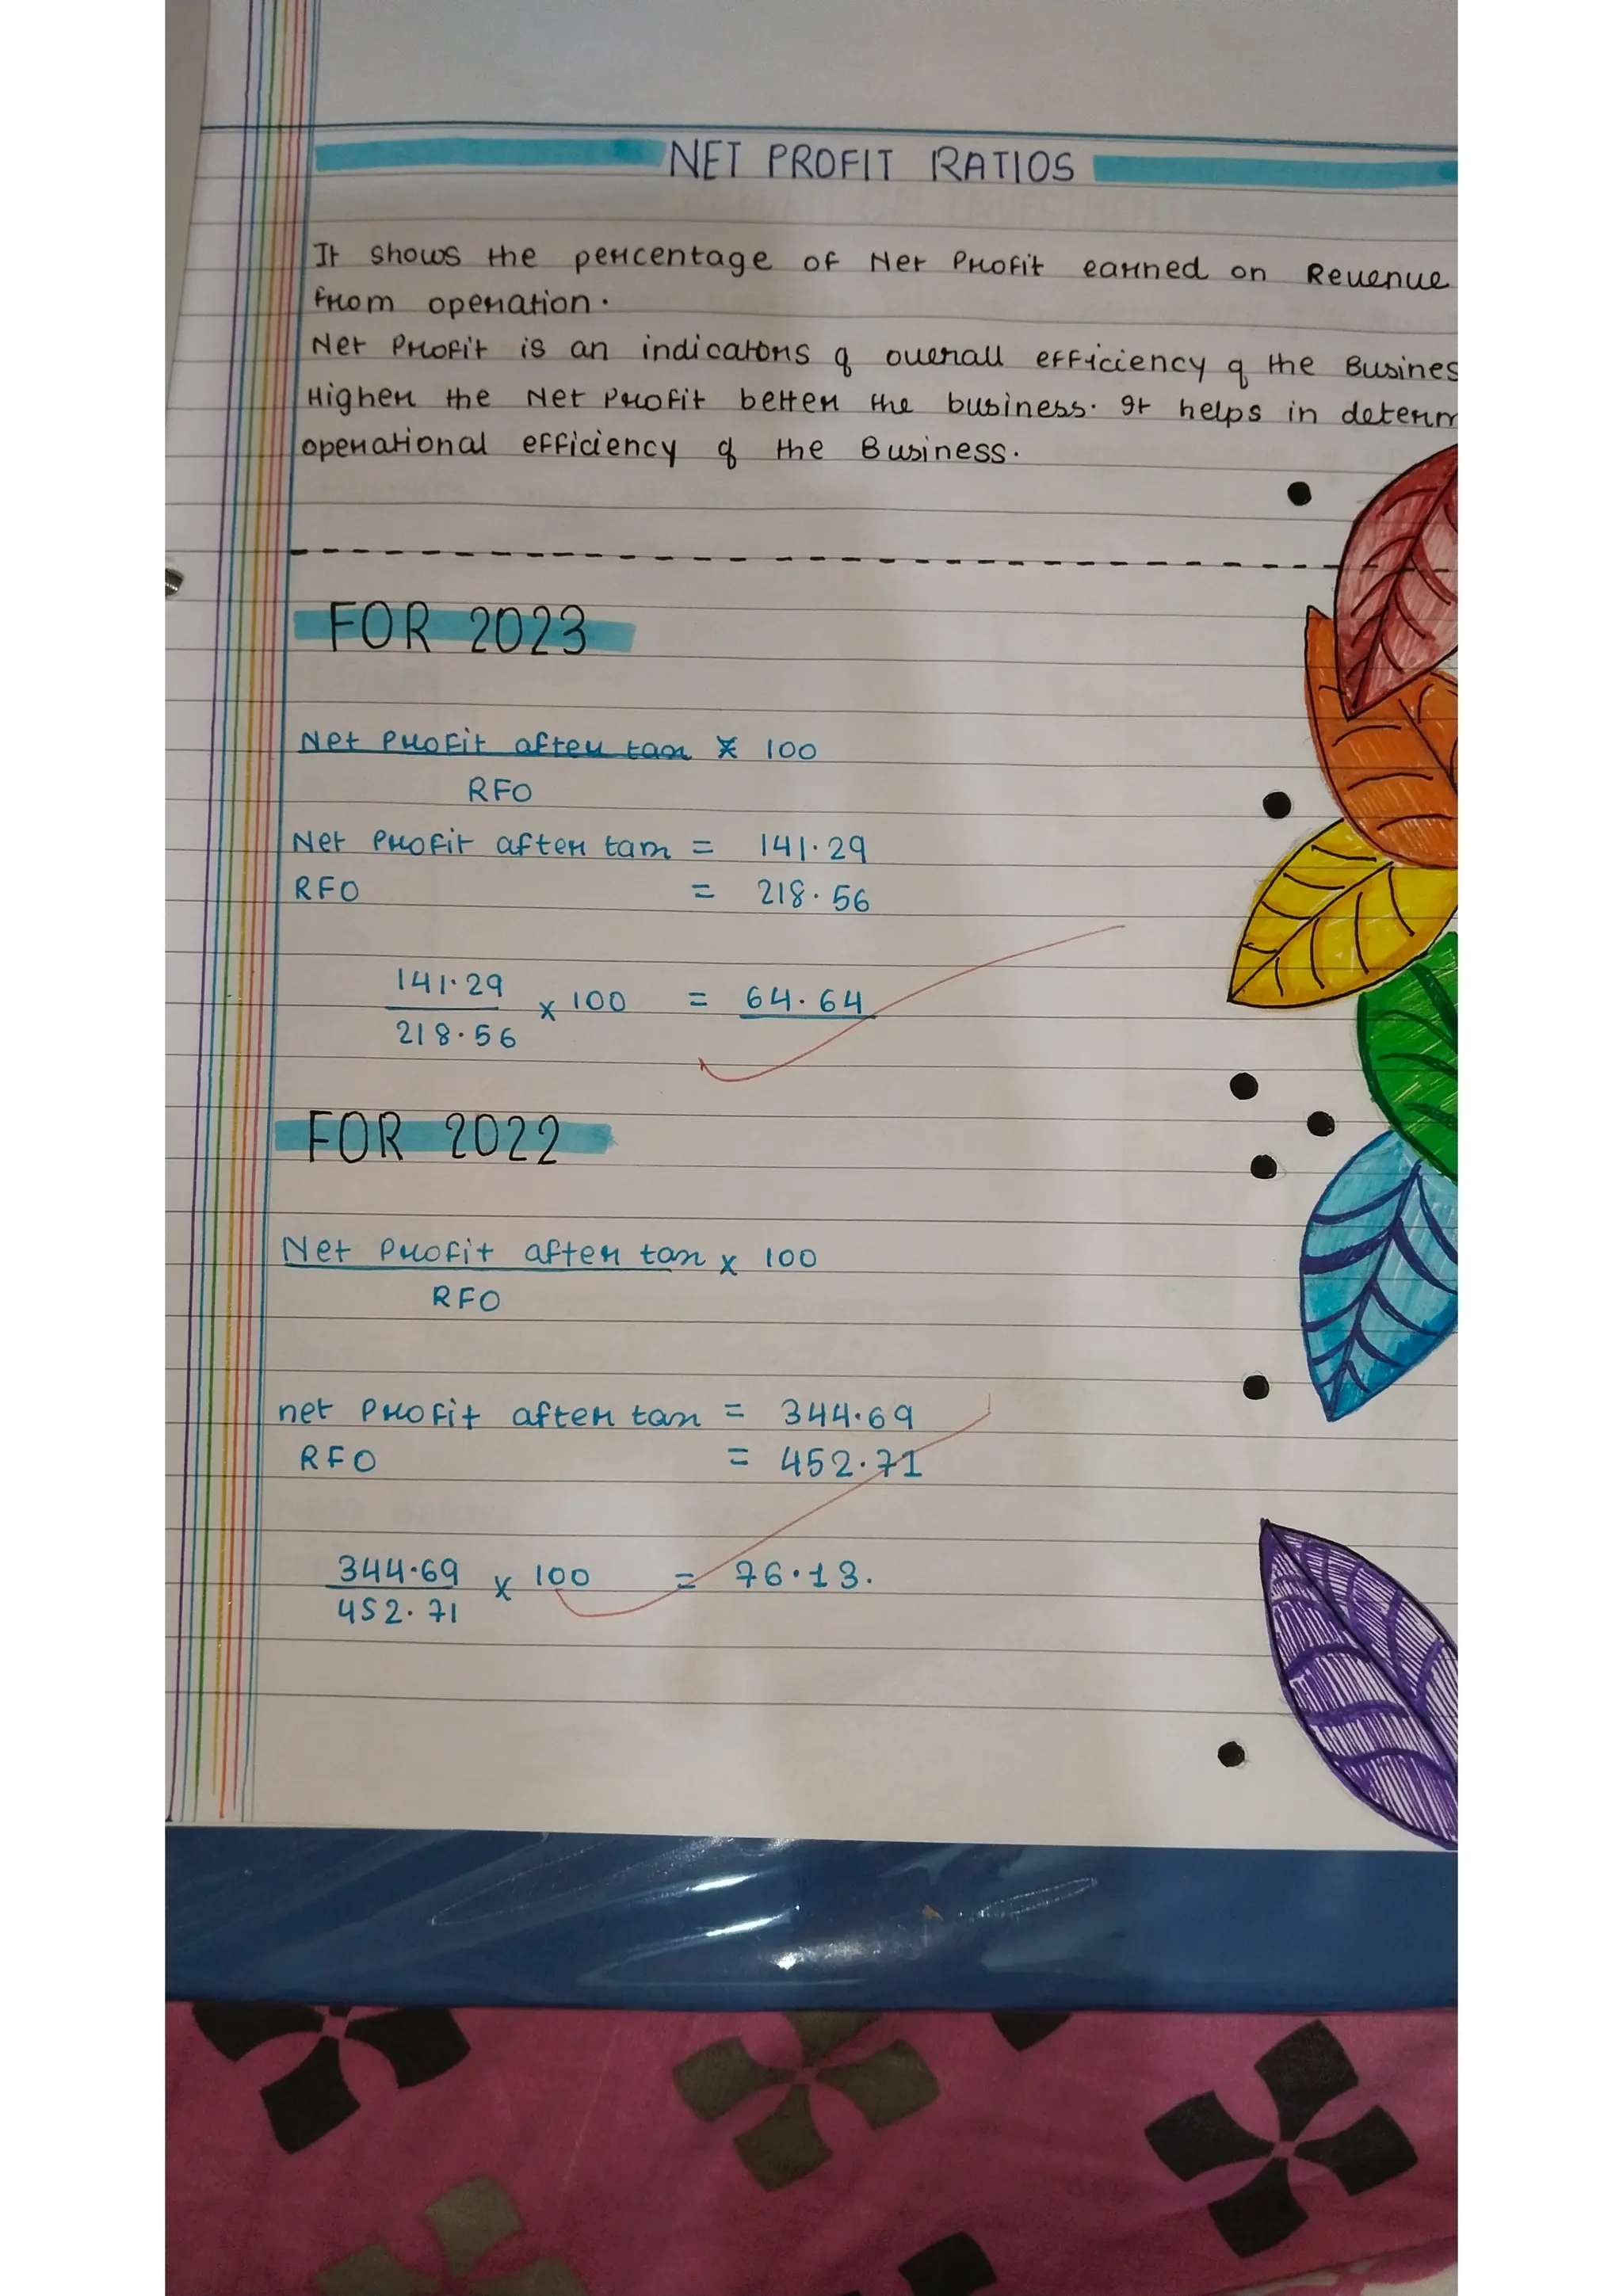 NET PROFIT RATIOS
It shows the percentage of Net Profit earned on Revenue
from operation.
Net Profit is an indicators of overall efficiency of the Busines
Higher the Net Profit better the business. It helps in determ
operational efficiency of the Business.
FOR 2023
Net Profit after tax × 100
RFO
Net Profit after tax = 141.29
RFO = 218.56
141.29
× 100 = 64.64
218.56
FOR 2022
Net Profit after tax × 100
RFO
net Profit after tax = 344.69
RFO = 452.71
344.69
× 100 = 76.13.
452.71